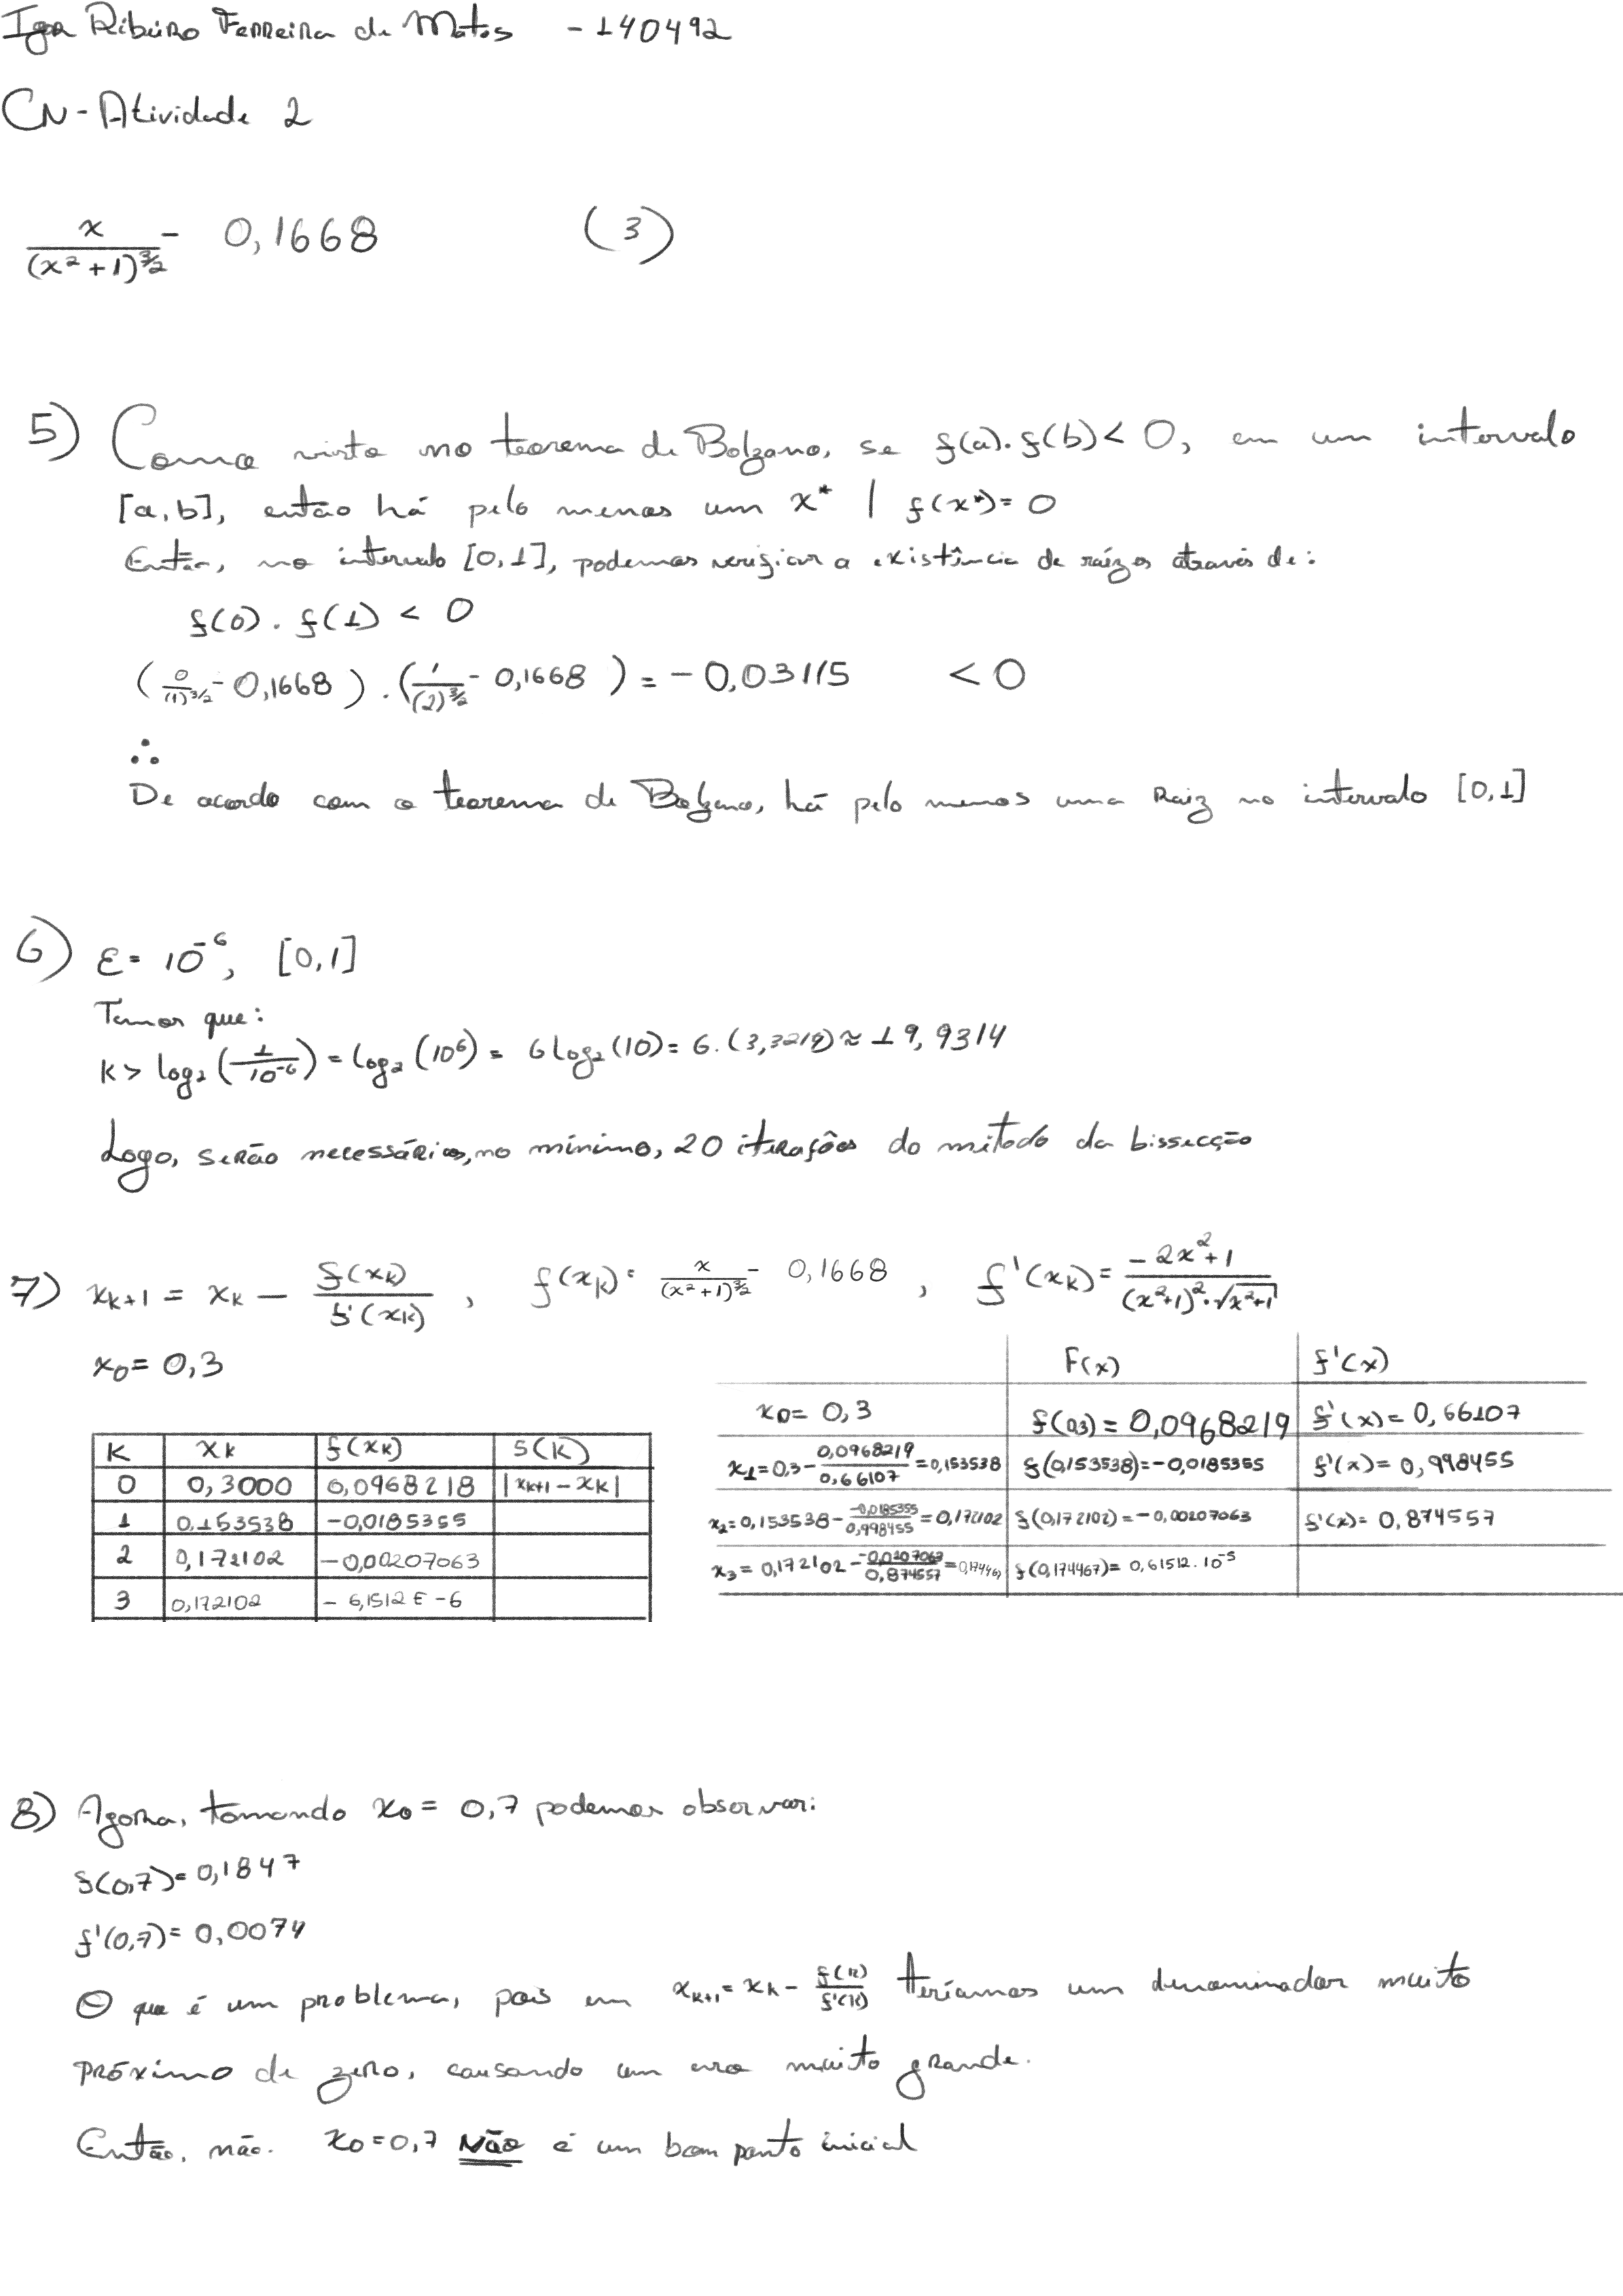 Igor Ribeiro Ferreira de Matos - 140492
CN - Atividade 2
x/(x²+1)^3/2 - 0,1668 (3)
5) Como visto no teorema de Bolzano, se f(a).f(b) < 0, em um intervalo
[a,b], então há pelo menos um x* | f(x*) = 0
Então, no intervalo [0,1], podemos verificar a existência de raízes através de:
f(0) . f(1) < 0
(0/(1)^3/2 - 0,1668) . (1/(2)^3/2 - 0,1668) = - 0,03115 < 0
∴
De acordo com o teorema de Bolzano, há pelo menos uma Raiz no intervalo [0,1]
6) ε = 10^-6, [0,1]
Temos que:
K > log₂(1/10^-6) = log₂(10^6) = 6log₂(10) = 6.(3,3219) ≈ 19,9314
Logo, serão necessárias, no mínimo, 20 iterações do método da bissecção
7) x_k+1 = x_k - f(x_k)/f'(x_k), f(x_k) = x/(x²+1)^3/2 - 0,1668, f'(x_k) = -2x²+1/(x²+1)².√x²+1
x₀ = 0,3
K xk f(xk) S(k)
0 0,3000 0,0968218 |x_k+1 - x_k|
1 0,153538 -0,0185355
2 0,172102 -0,00207063
3 0,172102 - 6,1512E-6
F(x) f'(x)
x₀ = 0,3 f(0,3) = 0,0968219 f'(x) = 0,66107
x₁ = 0,3 - 0,0968219/0,66107 = 0,153538 f(0,153538) = -0,0185355 f'(x) = 0,998455
x₂ = 0,153538 - -0,0185355/0,998455 = 0,172102 f(0,172102) = -0,00207063 f'(x) = 0,874557
x₃ = 0,172102 - -0,0207063/0,874557 = f(0,174467) = 0,61512.10^-5
8) Agora, tomando x₀ = 0,7 podemos observar:
f(0,7) = 0,1847
f'(0,7) = 0,0074
O que é um problema, pois em x_k+1 = x_k - f(k)/f'(k) teríamos um denominador muito
próximo de zero, causando um erro muito grande.
Então, não. x₀ = 0,7 Não é um bom ponto inicial